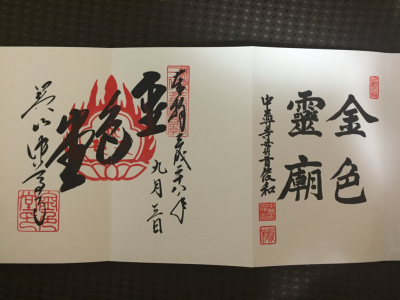 金色
靈廟
中尊寺貫首俊和
奉拝 平成二十八年
九月三日
金色堂
関山中尊寺